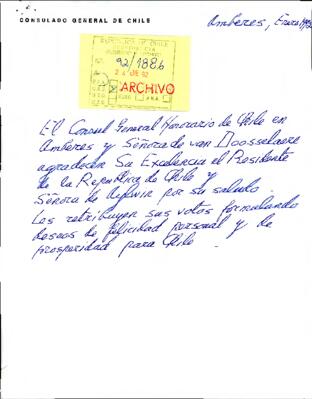 CONSULADO GENERAL DE CHILE
Amberes, Enero 1992
REPUBLICA DE CHILE
PRESIDENCIA
92/1886
24 ENE 92
ARCHIVO
El Consul General Honorario de Chile en
Amberes y Señora de van Doosselaere
agradecen Su Excelencia el Presidente
de la Republica de Chile y
Señora de Aylwin por su saludo.
Les retribuyen sus votos formulando
deseos de felicidad personal y de
prosperidad para Chile.